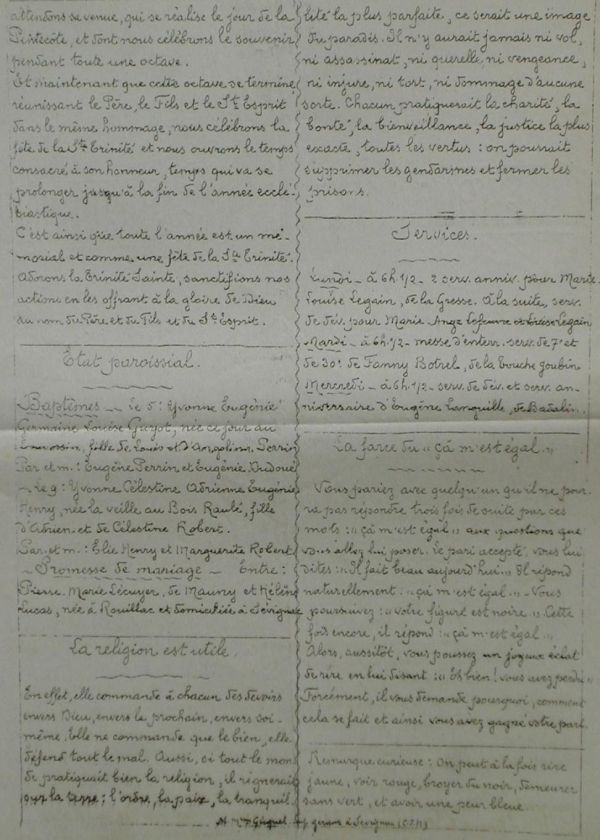 attendons sa venue, qui se réalise le jour de la
Pentecôte, et dont nous célébrons le souvenir
pendant toute une octave.
Et maintenant que cette octave se termine
réunissant le Père, le Fils et le St Esprit
dans le même hommage, nous célébrons la
fête de la Ste Trinité et nous ouvrons le temps
consacré à son honneur, temps qui va se
prolonger jusqu'à la fin de l'année ecclé-
siastique.
C'est ainsi que toute l'année est un mé-
morial et comme une fête de la Ste Trinité.
Adorons la Trinité Sainte, sanctifions nos
actions en les offrant à la gloire de Dieu
au nom du Père et du Fils et du St Esprit.
Etat paroissial.
Baptêmes — Le 5: Yvonne Eugénie
Germaine Louise Guyot, née ce jour au
fille de Louis et d'Angelina Perrin
Par et m.: Eugène Perrin et Eugénie
— Le 9: Yvonne Célestine Adrienne Eugénie
Henry, née la veille au Bois Raulé, fille
d'Adrien et de Célestine Robert.
Par. et m.: Elie Henry et Marguerite Robert
— Promesse de mariage — Entre:
Pierre Marie Lécuyer, de Mauny et Hélène
Lucas, née à Rouillac et domiciliée à Sévignac
La religion est utile.
En effet, elle commande à chacun des devoirs
envers Dieu, envers le prochain, envers soi-
même, elle ne commande que le bien, elle
défend tout le mal. Aussi, si tout le mon-
de pratiquait bien la religion, il règnerait
sur la terre; l'ordre, la paix, la tranquil-
lité la plus parfaite, ce serait une image
du paradis. Il n'y aurait jamais ni vol,
ni assassinat, ni querelle, ni vengeance,
ni injure, ni tort, ni dommage d'aucune
sorte. Chacun pratiquerait la charité, la
bonté, la bienveillance, la justice la plus
exacte, toutes les vertus: on pourrait
supprimer les gendarmes et fermer les
prisons.
Services.
Lundi — à 6h 1/2 - 2 serv. anniv. pour Marie
Louise Legain, de la Gresse. A la suite, serv.
de dév. pour Marie Ange Lefeuvre Legain
Mardi — à 6h 1/2 - messe d'enterr. serv. de 7e et
de 30e de Fanny Botrel, de la Touche goubin
Mercredi — à 6h 1/2 - serv. de dév. et serv. an-
niversaire d'Eugène Languille, de
La farce du "çà m'est égal"
Vous pariez avec quelqu'un qu'il ne pour-
ra pas répondre trois fois de suite par ces
mots: "çà m'est égal" aux questions que
vous allez lui poser. Le pari accepté, vous lui
dites: "Il fait beau aujourd'hui" Il répond
naturellement: "çà m'est égal" - Vous
poursuivez: "votre figure est noire" Cette
fois encore, il répond: "çà m'est égal"
Alors, aussitôt, vous poussez un joyeux éclat
de rire en lui disant: "Eh bien! vous avez perdu"
Forcément, il vous demande pourquoi, comment
cela se fait et ainsi vous avez gagné votre pari.
Remarque curieuse: On peut à la fois rire
jaune, voir rouge, broyer du noir, demeurer
sans vert, et avoir une peur bleue.
gérant à Sévignac (C.d.N)